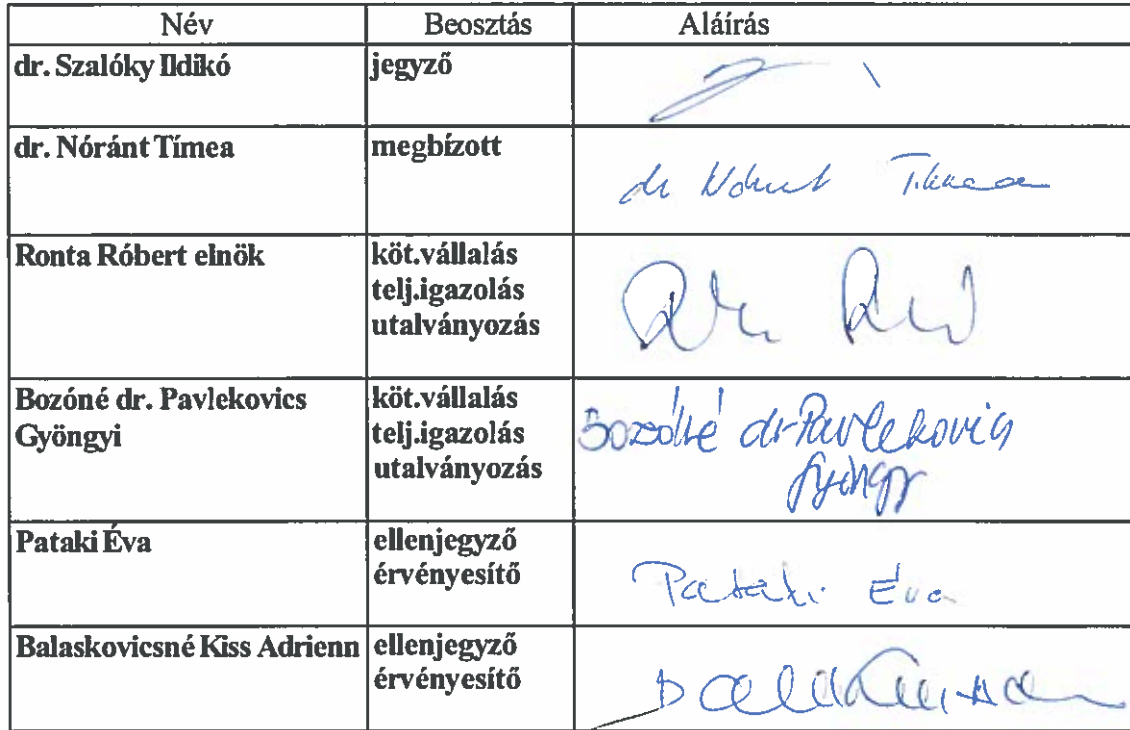 Név Beosztás Aláírás
dr. Szalóky Ildikó jegyző
dr. Nóránt Tímea megbízott
dr Nóránt Tímea
Ronta Róbert elnök köt.vállalás
telj.igazolás
utalványozás
Bozóné dr. Pavlekovics köt.vállalás
Gyöngyi telj.igazolás
utalványozás
Bozóné dr. Pavlekovics
Gyöngyi
Pataki Éva ellenjegyző
érvényesítő
Pataki Éva
Balaskovicsné Kiss Adrienn ellenjegyző
érvényesítő